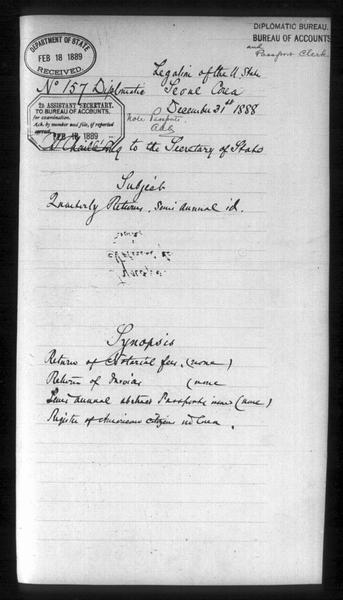 DEPARTMENT OF STATE
FEB 18 1889
RECEIVED.
DIPLOMATIC BUREAU.
BUREAU OF ACCOUNTS
and
Passport Clerk
Legation of the U. State
No 157 Diplomatic Seoul Corea
December 31st 1888
2D ASSISTANT SECRETARY.
TO BUREAU OF ACCOUNTS,
for examination.
Ack. by number and file, if reported
FEB 18 1889
Note Passports
to the Secretary of State
Subject
Quarterly Returns, Semi annual id.
Synopsis
Return of Notarial fees. (none)
Return of (none
Semi annual abstract Passports (none)
Register of Americans citizens in Corea.